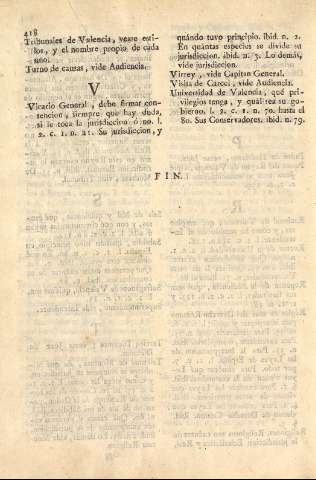 418
Tribunales de Valencia, vease esti-
los, y el nombre propio de cada
uno.
Turno de causas, vide Audiencia.
V
Vicario General, debe firmar con-
tencion, siempre que hay duda,
si le toca la jurisdiccion ó no. l.
2. c. 1. n. 21. Su jurisdiccion, y
quándo tuvo principio. ibid. n. 2.
En quántas especies se divide su
jurisdiccion. ibid. n. 3. Lo demás,
vide jurisdiccion.
Virrey, vide Capitan General.
Visita de Carcel, vide Audiencia.
Universidad de Valencia, qué pri-
vilegios tenga, y quál sea su go-
bierno. l. 2. c. 1. n. 70. hasta el
80. Sus Conservadores. ibid. n. 79.
FIN.